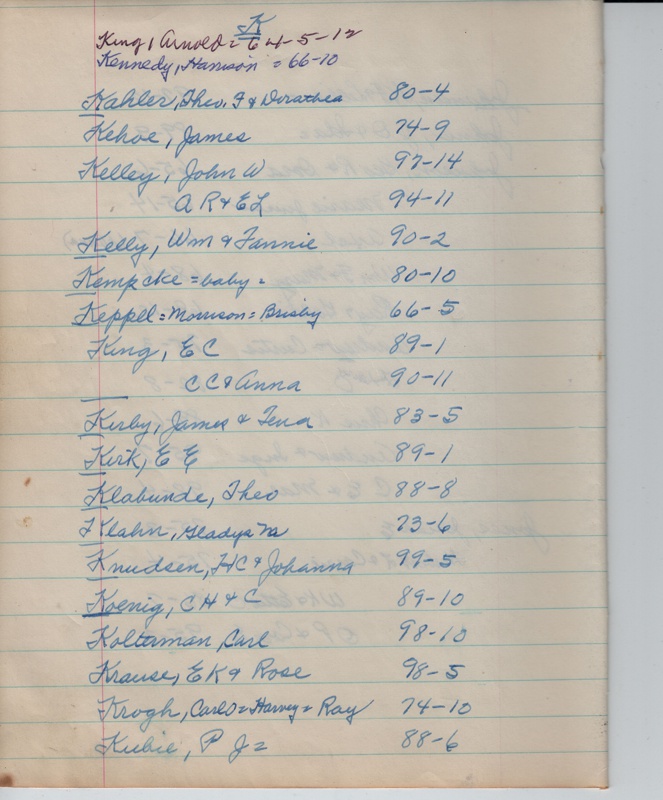 K
King, Arnold = 64-5-12
Kennedy, Harrison = 66-10
Kahler, Theo. F & Dorathea 80-4
Kehoe, James 74-9
Kelley, John W 97-14
A R & E L 94-11
Kelly, Wm & Fannie 90-2
Kempcke = baby = 80-10
Keppel = Morrison = Brisby 66-5
King, E C 89-1
C C & Anna 90-11
Kirby, James & Tena 83-5
Kirk, E E 89-1
Klabunde, Theo 88-8
Klahn, Gladys M 73-6
Knudsen, H C & Johanna 99-5
Koenig, C H & C 89-10
Kolterman, Carl 98-10
Krause, E K & Rose 98-5
Krogh, Carl = Harvey = Ray 74-10
Kubie, P J = 88-6